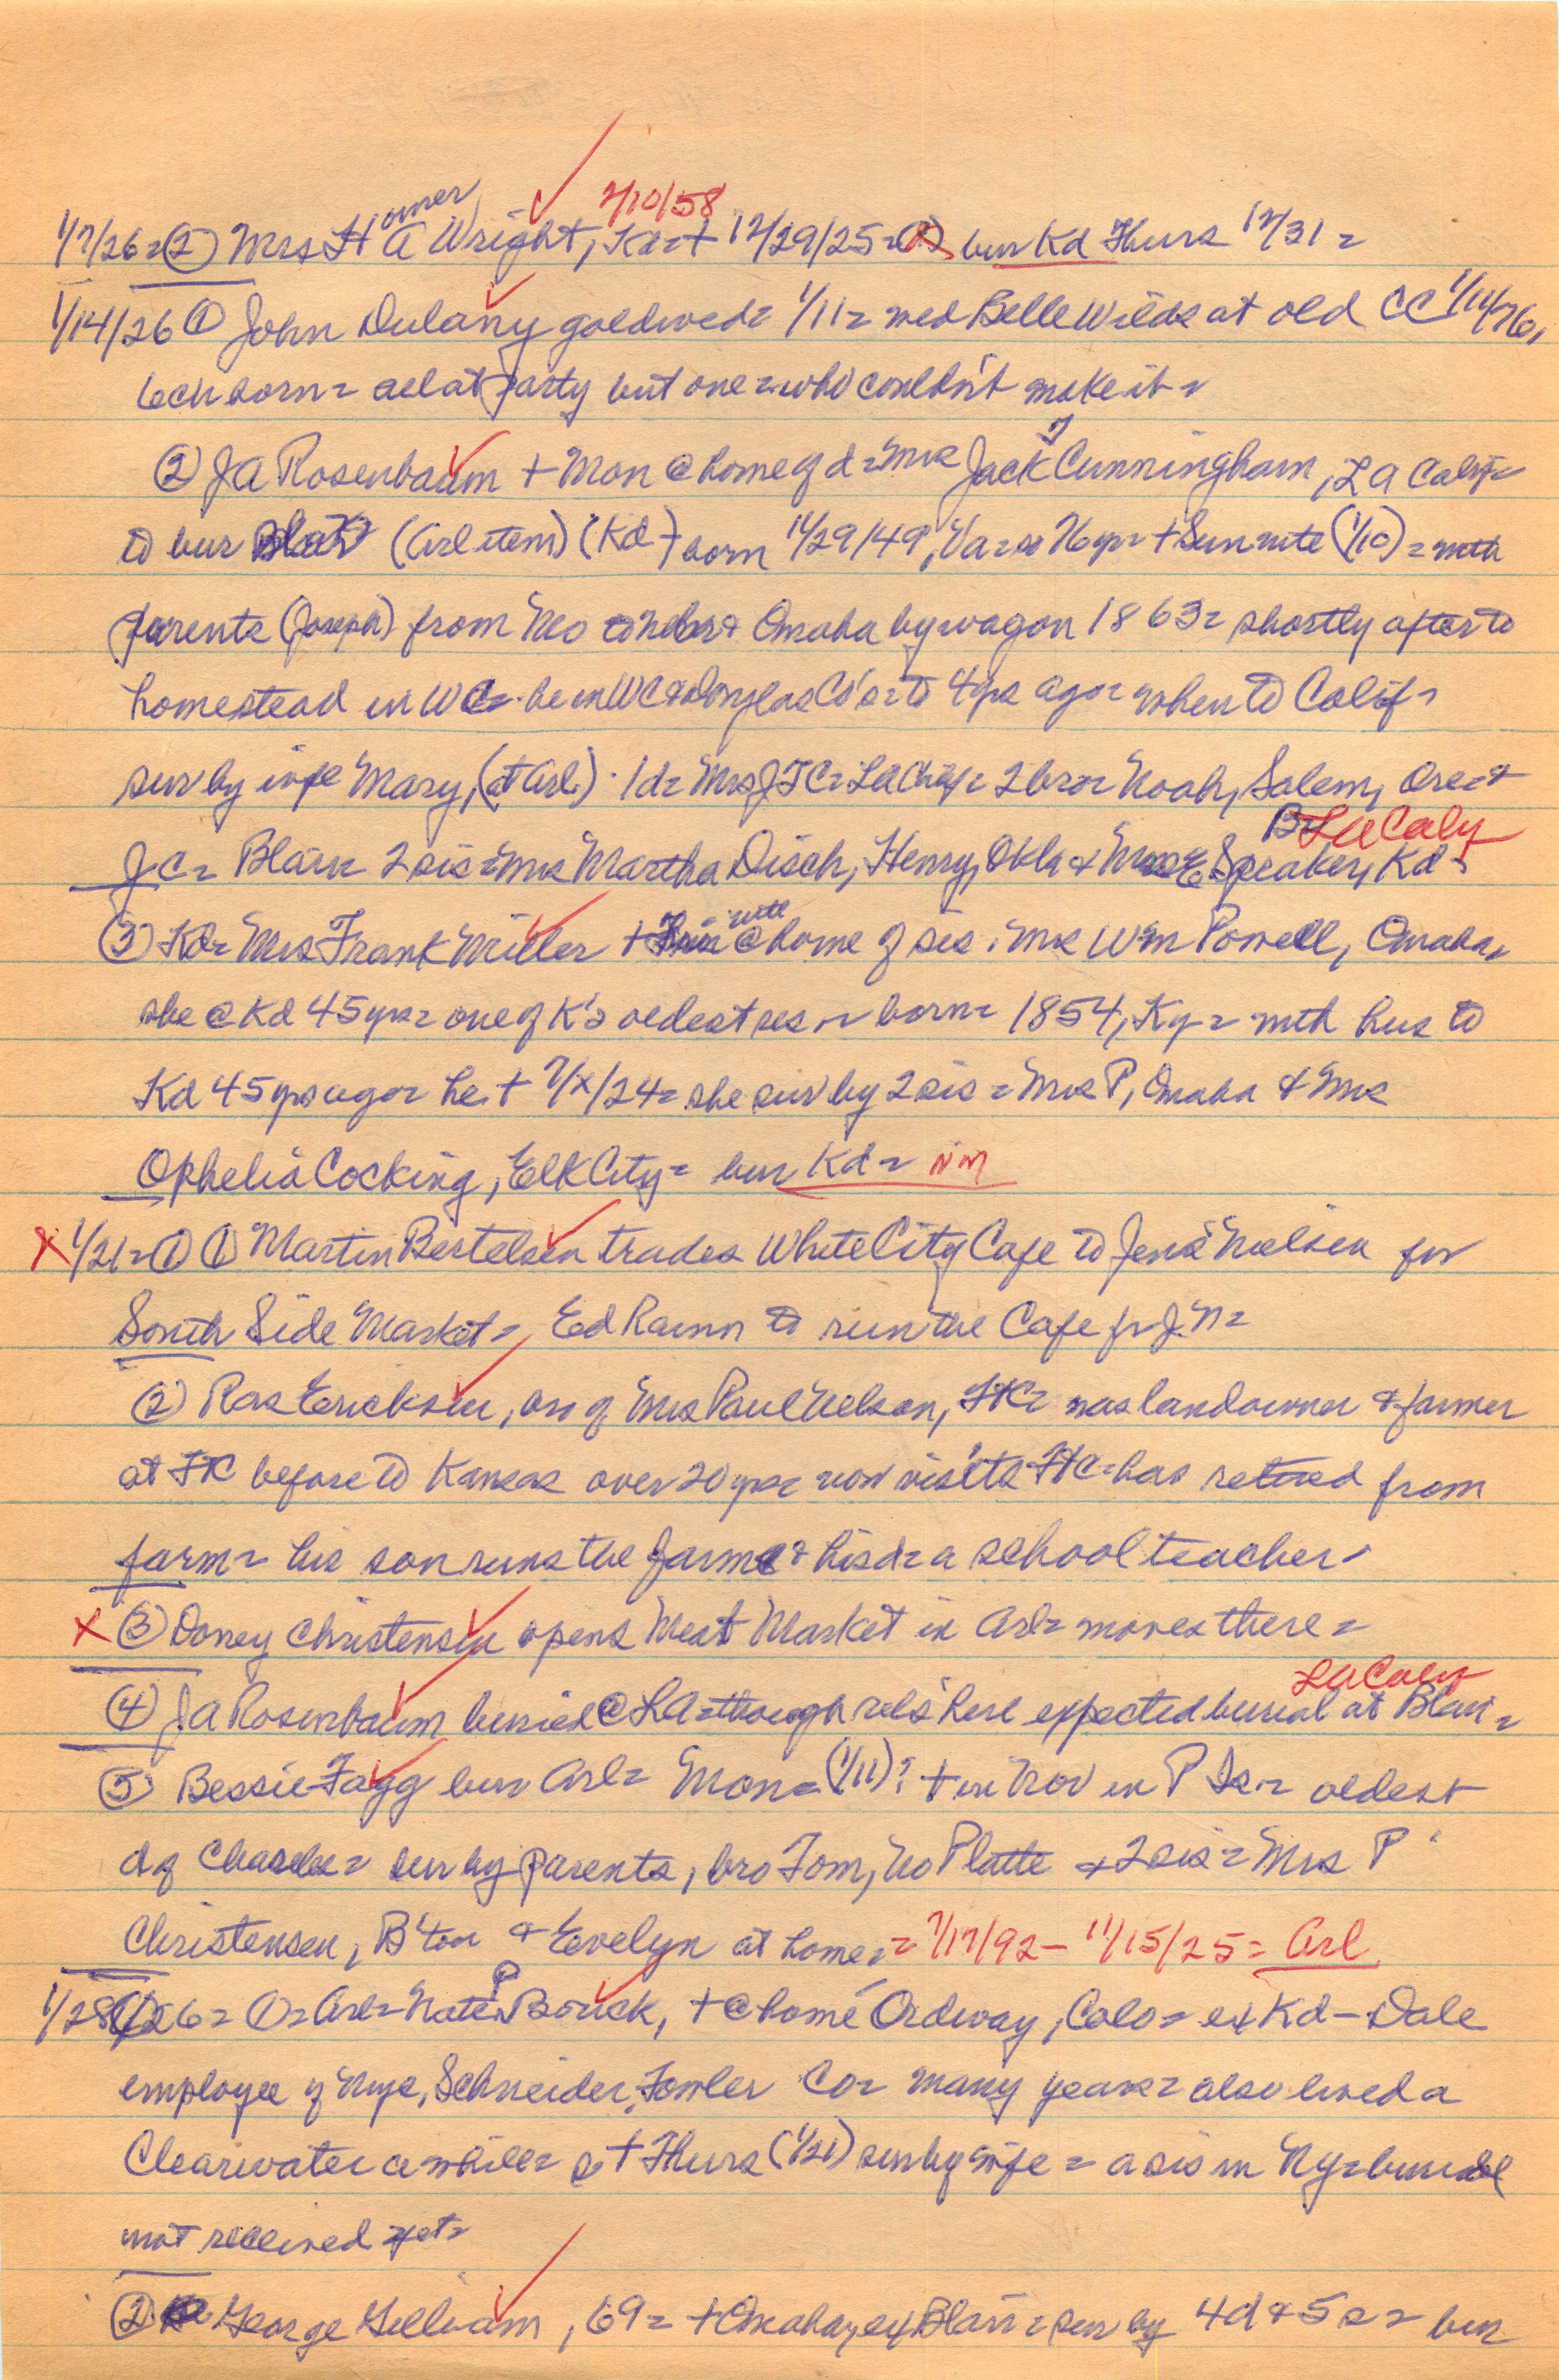 omer 7/10/58
1/7/26= (2) Mrs H A Wright, Kd= + 12/29/25= bur Kd Thurs 12/31=
1/14/26 (1) John Dulany goldwed= 1/11= wed Belle Wilds at old CC 1/11/76,
6 ch born= all at party but one= who couldn't make it=
(2) JA Rosenbaum + Mon @ home of d= Mrs Jack Cunningham, LA Calif=
to bur Blair (Arl item) (Kd + born 11/29/49, Va= 76 yr= + Sun nite (1/10) = with
parents (Joseph) from Mo to Omaha by wagon 1863= shortly after to
homestead in WC= he in WC & Douglas Co's= to 4 yrs ago= when to Calif=
sur by wife Mary, (at Arl) 1 d= Mrs JTC= LA Calif= 2 bro= Noah, Salem, Ore= &
LA Calif
JC= Blair= 2 sis= Mrs Martha Disch, Henry, Okla & Mrs E Speaker, Kd=
(3) Kd= Mrs Frank Miller + nite @ home of sis. Mrs Wm Powell, Omaha,
she @ Kd 45 yrs= one of K's oldest res= born= 1854, Ky= with hus to
Kd 45 yrs ago= he + 7/x/24= she sur by 2 sis= Mrs P, Omaha & Mrs
Ophelia Cocking, Elk City= bur Kd= NM
X 1/21= (1) (1) Martin Bertelsen trades White City Cafe to Jens Nielsen for
South Side Market= Ed Raunn to run the Cafe for J.N=
(2) Ras Ericksen, of Mrs Paul Nelson, FK= was landowner & farmer
at FK before to Kansas over 20 yrs= now visits FK= has retired from
farm= his son runs the farm & his d= a school teacher=
X (3) Doney Christensen opens Meat Market in Arl= moves there=
LA Calif
(4) JA Rosenbaum buried @ LA= though rel's here expected burial at Blair=
(5) Bessie Fagg bur Arl= Mon= (1/11)? + in Nov in P Is.= oldest
d of Charles= sur by parents, bro Tom, No Platte & 2 sis= Mrs P
Christensen, B'ton & Evelyn at home= = 7/17/92- 11/15/25= Arl
1/28/26= (1)= Arl= Nate P Borick, + @ home Ordway, Colo= ex Kd- Dale
employee of Nye, Schneider, Fowler Co= many years= also lived a
Clearwater a while= + Thurs (1/21) sur by wife= a sis in NY= burial
not received yet=
(2) George Gilliam, 69= + Omaha, ex Blair= sur by 4 d & 5 s= bur